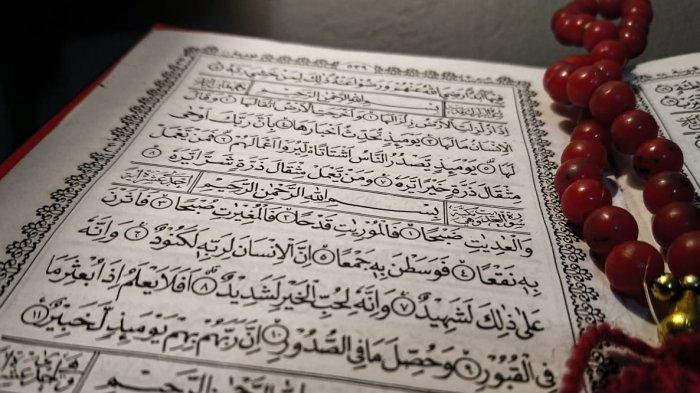 فِيهَا أَبَدًا رَضِيَ اللّٰهُ عَنْهُمْ وَرَضُوا عَنْهُ ذٰلِكَ لِمَنْ خَشِيَ رَبَّهُ ۝٨
بِسْمِ اللّٰهِ الرَّحْمٰنِ الرَّحِيمِ
إِذَا زُلْزِلَتِ الْأَرْضُ زِلْزَالَهَا ۝١ وَأَخْرَجَتِ الْأَرْضُ أَثْقَالَهَا ۝٢ وَقَالَ
الْإِنْسَانُ مَا لَهَا ۝٣ يَوْمَئِذٍ تُحَدِّثُ أَخْبَارَهَا ۝٤ بِأَنَّ رَبَّكَ أَوْحٰى
لَهَا ۝٥ يَوْمَئِذٍ يَصْدُرُ النَّاسُ أَشْتَاتًا لِيُرَوْا أَعْمَالَهُمْ ۝٦ فَمَنْ يَعْمَلْ
مِثْقَالَ ذَرَّةٍ خَيْرًا يَرَهُ ۝٧ وَمَنْ يَعْمَلْ مِثْقَالَ ذَرَّةٍ شَرًّا يَرَهُ ۝٨
بِسْمِ اللّٰهِ الرَّحْمٰنِ الرَّحِيمِ
وَالْعٰدِيٰتِ ضَبْحًا ۝١ فَالْمُورِيٰتِ قَدْحًا ۝٢ فَالْمُغِيرٰتِ صُبْحًا ۝٣ فَأَثَرْنَ
بِهِ نَقْعًا ۝٤ فَوَسَطْنَ بِهِ جَمْعًا ۝٥ إِنَّ الْإِنْسَانَ لِرَبِّهِ لَكَنُودٌ ۝٦ وَإِنَّهُ
عَلٰى ذٰلِكَ لَشَهِيدٌ ۝٧ وَإِنَّهُ لِحُبِّ الْخَيْرِ لَشَدِيدٌ ۝٨ أَفَلَا يَعْلَمُ إِذَا بُعْثِرَ مَا
فِي الْقُبُورِ ۝٩ وَحُصِّلَ مَا فِي الصُّدُورِ ۝١٠ إِنَّ رَبَّهُمْ بِهِمْ يَوْمَئِذٍ لَخَبِيرٌ ۝١١
بِسْمِ اللّٰهِ الرَّحْمٰنِ الرَّحِيمِ